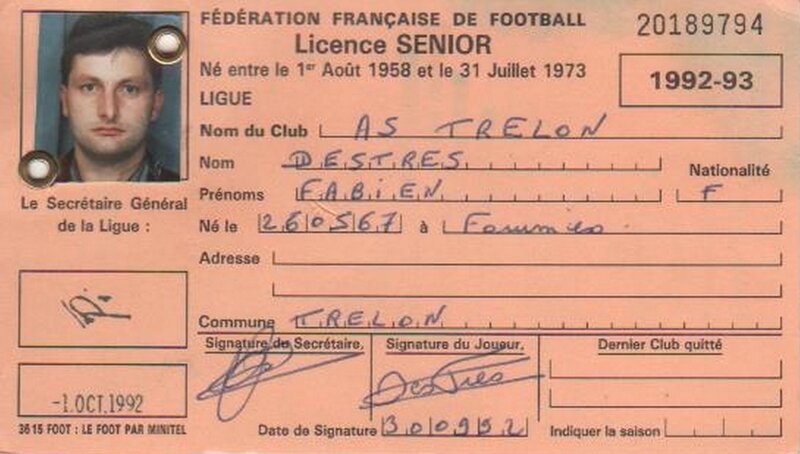 FÉDÉRATION FRANÇAISE DE FOOTBALL
20189794
Licence SENIOR
Né entre le 1er Août 1958 et le 31 Juillet 1973
1992-93
LIGUE
Nom du Club AS TRELON
Nom DESTRES
Nationalité
Prénoms FABIEN F
Le Secrétaire Général
de la Ligue :
Né le 260567 à Fourmies
Adresse
Commune TRELON
Signature du Secrétaire,
Signature du Joueur,
Dernier Club quitté
Destres
-1.OCT.1992
3615 FOOT : LE FOOT PAR MINITEL
Date de Signature 300992
Indiquer la saison